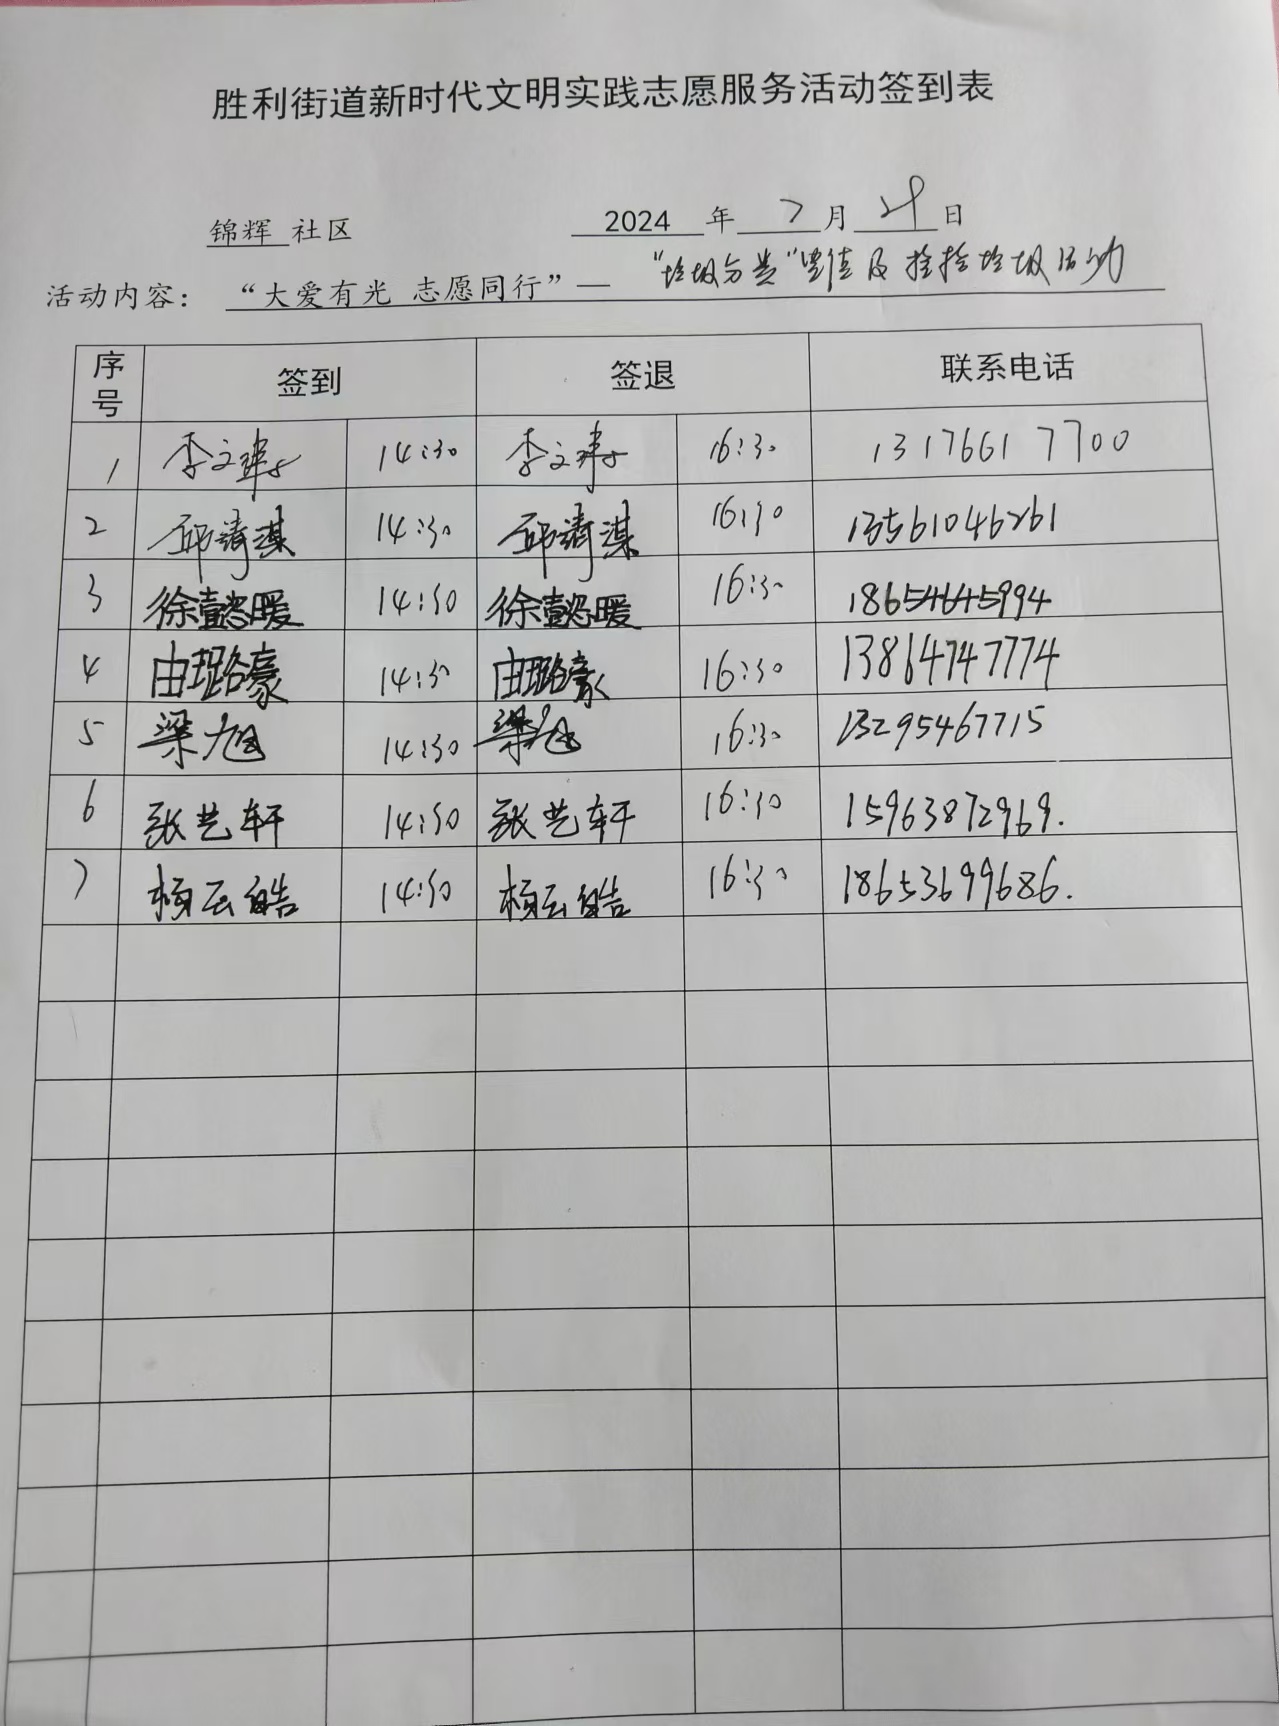 胜利街道新时代文明实践志愿服务活动签到表
锦辉 社区 2024 年 7 月 21 日
活动内容: “大爱有光 志愿同行”— “垃圾分类”宣传及捡拾垃圾活动
序号 签到 签退 联系电话
1 李文 14:30 李文 16:30 13176617700
2 邱清淇 14:30 邱清淇 16:30 13561046261
3 徐懿暖 14:30 徐懿暖 16:30 18654645994
4 由璐豪 14:30 由璐豪 16:30 13864747774
5 梁旭 14:30 梁旭 16:30 13295467715
6 张艺轩 14:30 张艺轩 16:30 15963872969.
7 杨云皓 14:30 杨云皓 16:30 18653699686.